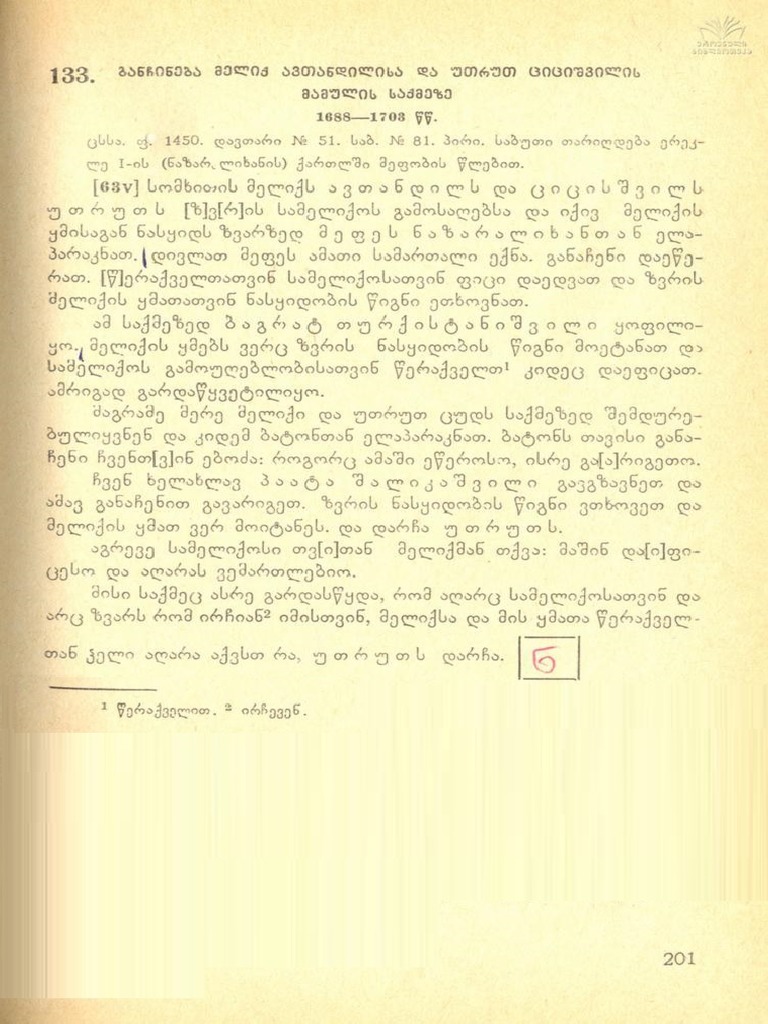 ეროვნული
ბიბლიოთეკა
133. განჩინება მელიქ ავთანდილისა და უთრუთ ციციშვილის
მამულის საქმეზე
1688—1703 წწ.
ცსსა. ფ. 1450. დავთარი № 51. საბ. № 81. პირი. საბუთი თარიღდება ერეკ-
ლე I-ის (ნაზარალიხანის) ქართლში მეფობის წლებით.
[63v] სომხითის მელიქს ავთანდილს და ციცისშვილს
უთრუთს [ზ]ვ[რ]ის სამელიქოს გამოსაღებსა და იქივ მელიქის
ყმისაგან ნასყიდს ზვარზედ მეფეს ნაზარალიხანთან ელა-
პარაკნათ. დივლათ მეფეს ამათი სამართალი ექნა. განაჩენი დაეწე-
რათ. [წ]ერაქველთათვინ სამელიქოსათვინ ფიცი დაედვათ და ზვრის
მელიქის ყმათათვინ ნასყიდობის წიგნი ეთხოვნათ.
ამ საქმეზედ ბაგრატ თურქისტანიშვილი ყოფილი-
ყო. მელიქის ყმებს ვერც ზვრის ნასყიდობის წიგნი მოეტანათ და
სამელიქოს გამოუღებლობისათვინ წერაქველთ¹ კიდეც დაეფიცათ.
ამრიგად გარდაწყვეტილიყო.
მაგრამე მერე მელიქი და უთრუთ ცუდს საქმეზედ შემდურე-
ბულიყვნენ და კიდემ ბატონთან ელაპარაკნათ. ბატონს თავისი განა-
ჩენი ჩვენთ[ვ]ინ ებოძა: როგორც ამაში ეწეროსო, ისრე გა[ა]რიგეთო.
ჩვენ ხელახლავ პაატა შალიკაშვილი გავგზავნეთ და
ამავ განაჩენით გავარიგეთ. ზვრის ნასყიდობის წიგნი ვთხოვეთ და
მელიქის ყმათ ვერ მოიტანეს. და დარჩა უთრუთს.
აგრევე სამელიქოსი თვ[ი]თან მელიქმან თქვა: მაშინ და[ი]ფი-
ცესო და აღარას ვემართლებიო.
მისი საქმეც ასრე გარდასწყდა, რომ აღარც სამელიქოსათვინ და
არც ზვარს რომ ირჩიან² იმისთვინ, მელიქსა და მის ყმათა წერაქველ-
თან ჴელი აღარა აქვსთ რა, უთრუთს დარჩა.
ნ
¹ წერაქველით. ² ირჩევენ.
201